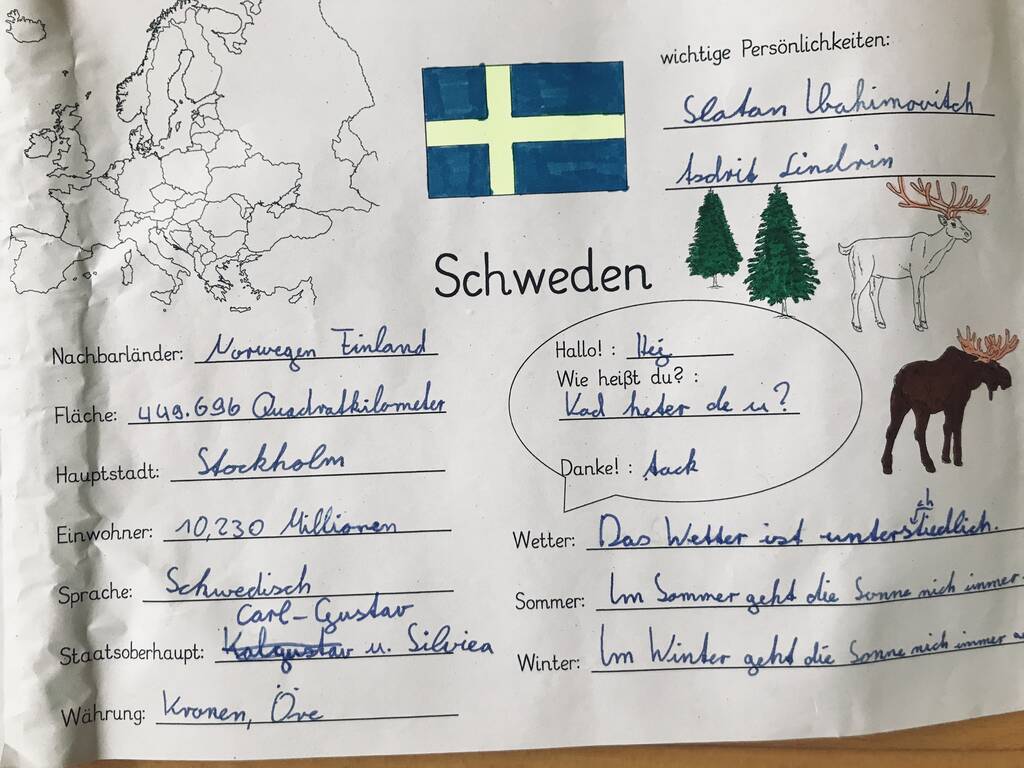 wichtige Persönlichkeiten:
Slatan Ibahimovitch
Asdrit Lindrin
Schweden
Nachbarländer: Norwegen Finland
Fläche: 449.696 Quadratkilometer
Hauptstadt: Stockholm
Einwohner: 10,230 Millionen
Sprache: Schwedisch
Carl-Gustav
Staatsoberhaupt: Kalgustav u. Silviea
Währung: Kronen, Öre
Hallo! : Hej
Wie heißt du? :
Vad heter de u?
Danke! : tack
ch
Wetter: Das Wetter ist unterstiedlich.
Sommer: Im Sommer geht die Sonne nich immer
Winter: Im Winter geht die Sonne nich immer a